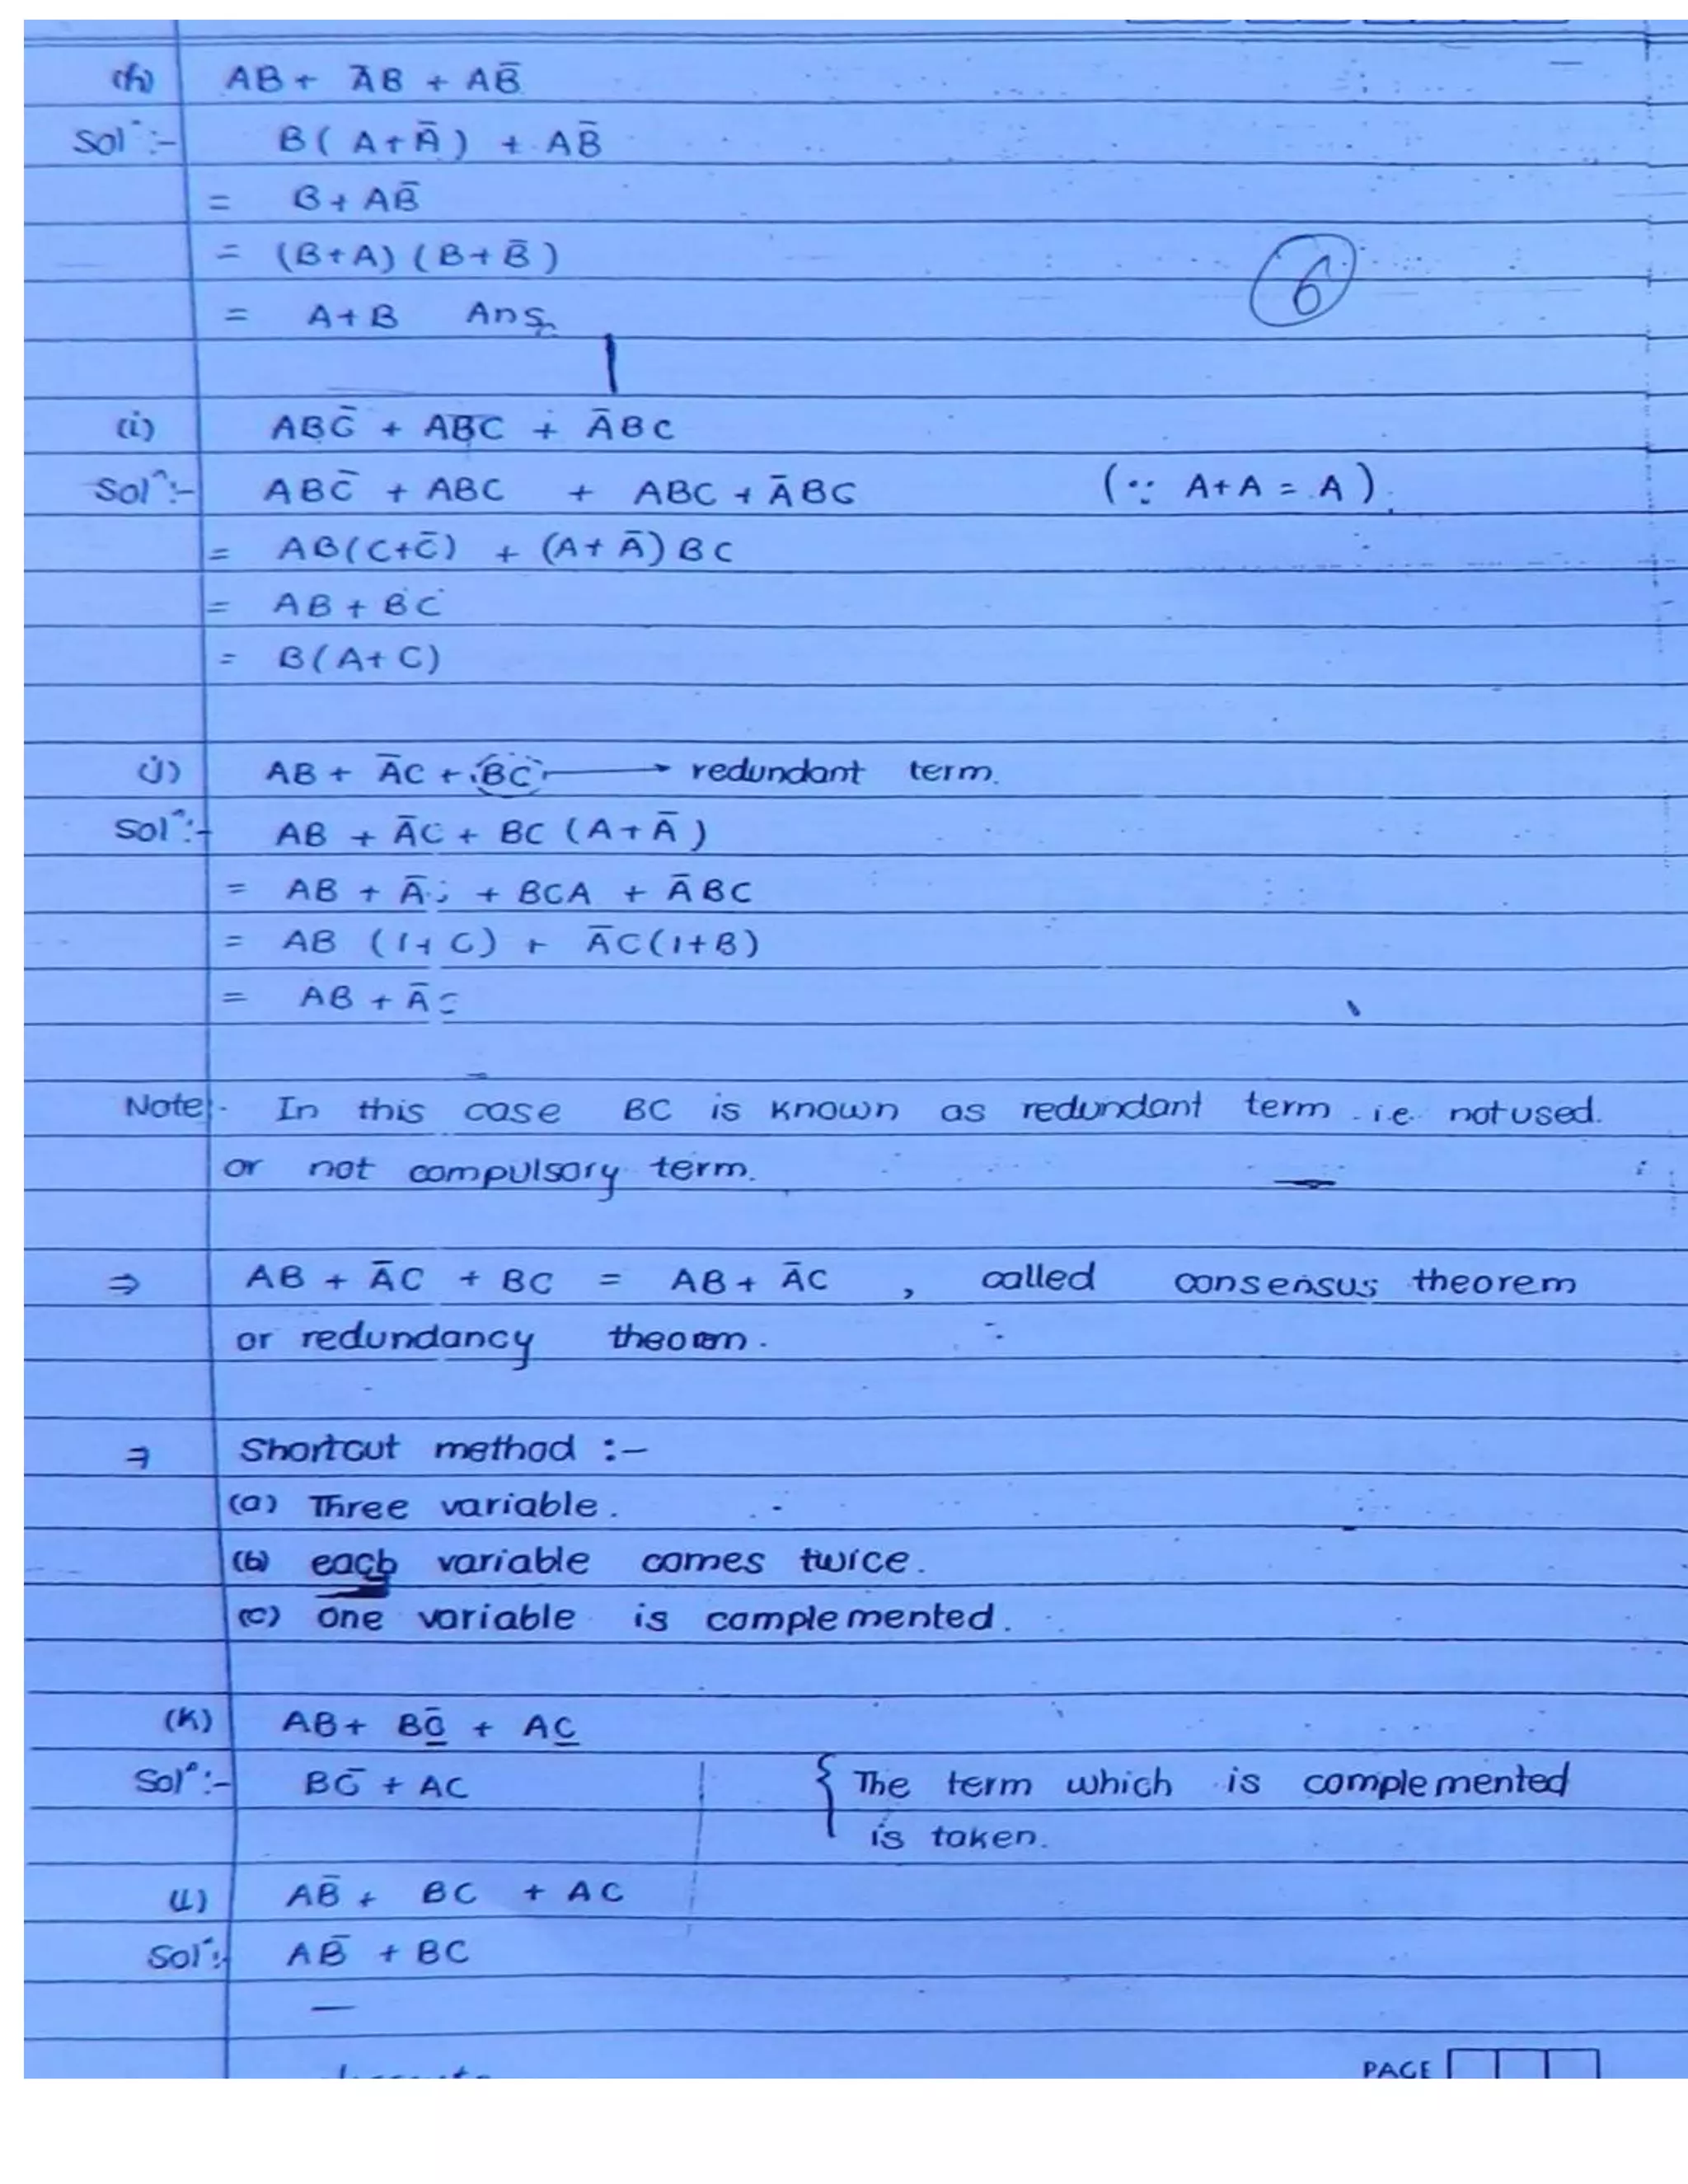 (h) AB + ĀB + AB̄
Solⁿ:- B( A+Ā ) + AB̄
= B + AB̄
= (B+A) ( B+B̄ )
= A+B Ans
6
(i) ABC̄ + ABC + ĀBC
Solⁿ:- ABC̄ + ABC + ABC + ĀBC (∵ A+A = A)
= AB(C+C̄) + (A+Ā)BC
= AB + BC
= B(A+C)
(j) AB + ĀC + BC → redundant term.
Solⁿ:- AB + ĀC + BC (A+Ā)
= AB + Ā + BCA + ĀBC
= AB (1+C) + ĀC(1+B)
= AB + ĀC
Note:- In this case BC is known as redundant term i.e. not used.
or not compulsory term.
⇒ AB + ĀC + BC = AB + ĀC , called consensus theorem
or redundancy theorem.
⇒ Shortcut method :-
(a) Three variable.
(b) each variable comes twice.
(c) one variable is complemented.
(K) AB + BC̄ + AC
Solⁿ:- BC̄ + AC { The term which is complemented
is taken.
(L) AB̄ + BC + AC
Solⁿ:- AB̄ + BC
PAGE